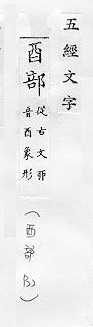 五經文字
酉部
從古文丣
音酉象形
(酉部